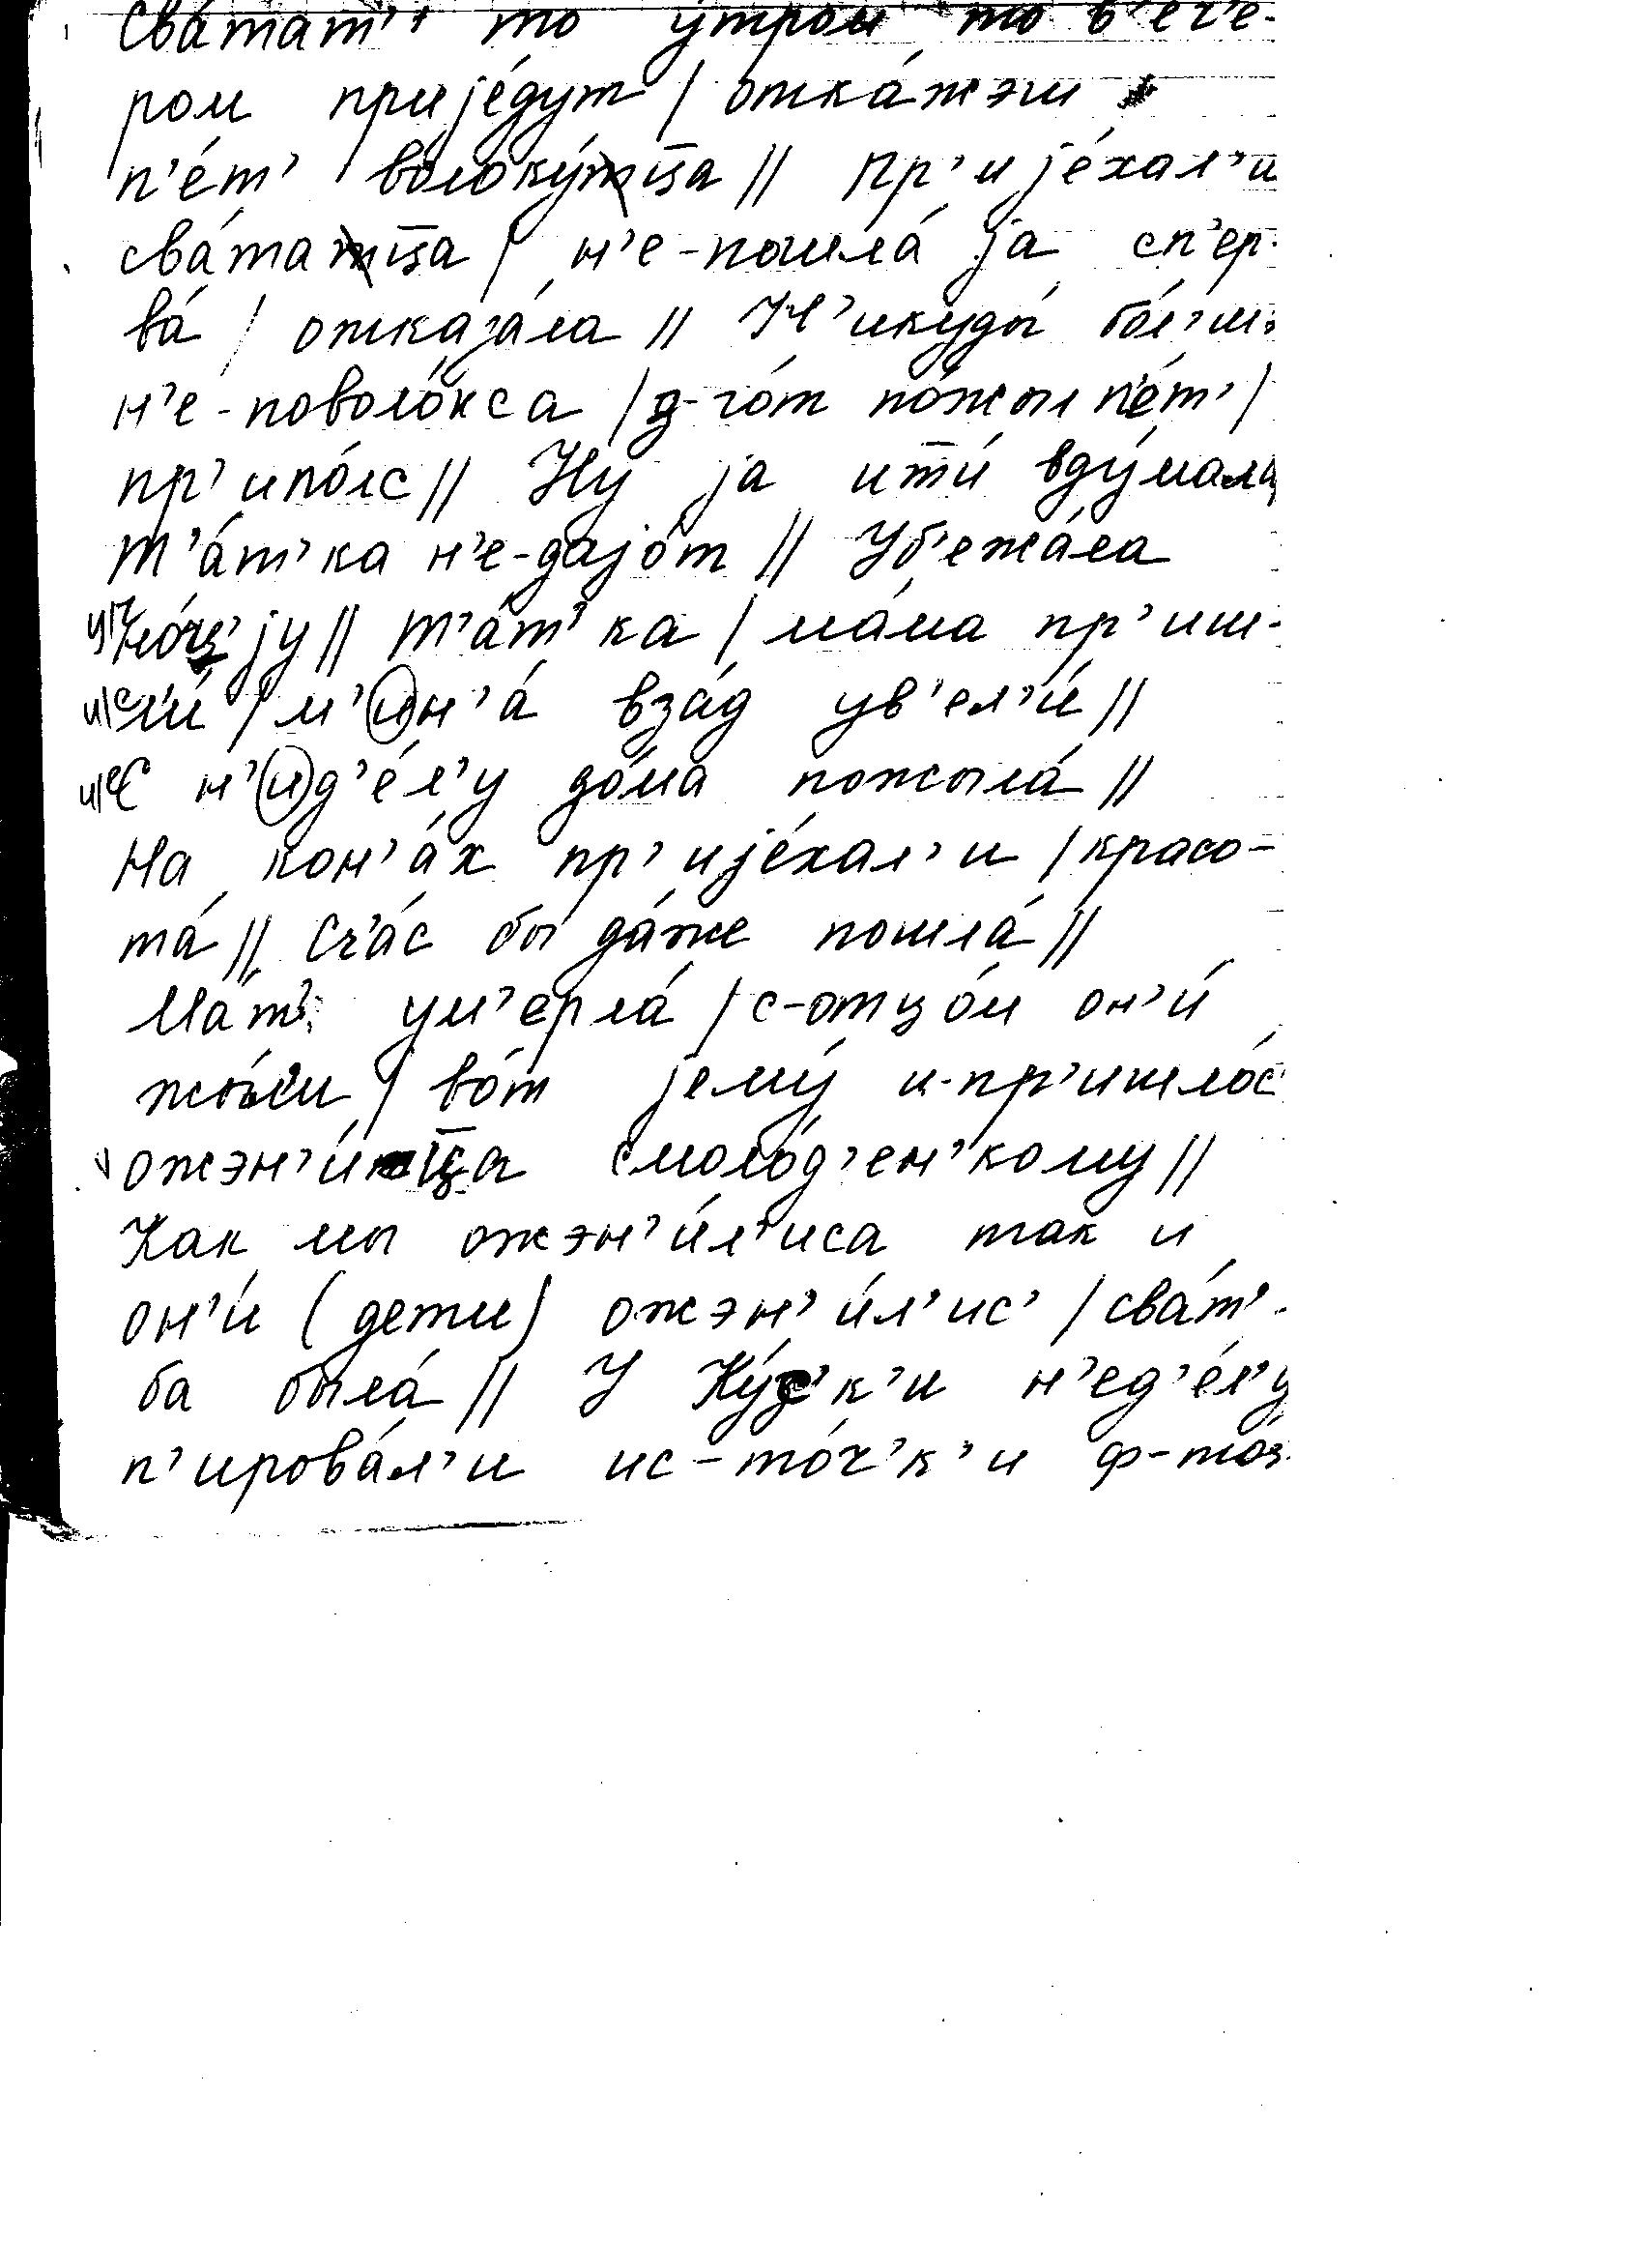 сва́тат' то у́тром то в'еч'е-
ром прије́дут / отка́жэш
п'е́т' волоку́ц̅а // Пр'ије́хал'и
сва́тац̅а / н'е-пошла́ ја сп'ер-
ва́ / отказа́ла // Н'икуды́ бо́л'ш
н'е-поволо́кса / д-го́т по́жыл п'е́т' /
пр'ипо́лс // Ну ја ит̅и́ вду́мала
Т'а́т'ка н'е-дајо́т // Уб'ежа́ла
но́ч'ју // Т'а́т'ка / ма́ма пр'иш-
л'и́ / м'ин'а́ вза́д ув'ел'и́ //
С н'ид'е́л'у до́ма пожыла́ //
На кон'а́х пр'ије́хал'и / красо-
та́ // Сч'а́с бы да́же пошла́ //
Ма́т' ум'ерла́ / с-отцо́м он'и́
жы́л'и / во́т јему́ и-пр'ишло́с'
ожэн'и́ц̅а смоло́д'ен'кому //
Как мы ожэн'и́л'иса так и
он'и́ (дети) ожэн'и́л'ис' / сва́т'-
ба была́ // У Ку́з'к'и н'ед'е́л'у
п'ирова́л'и ис-то́ч'к'и ф-то́ч